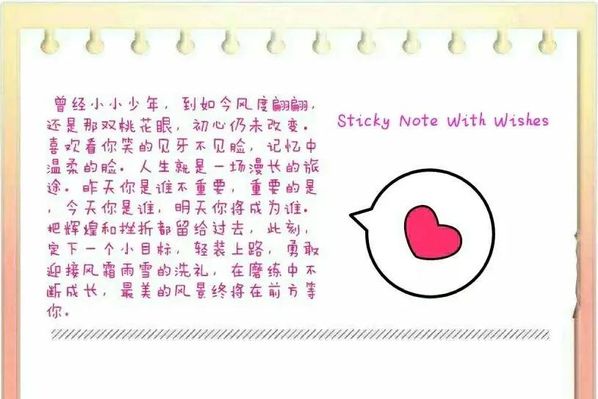 曾经小小少年，到如今风度翩翩，
还是那双桃花眼，初心仍未改变。
喜欢看你笑的见牙不见脸，记忆中
温柔的脸。人生就是一场漫长的旅
途。昨天你是谁不重要，重要的是
，今天你是谁，明天你将成为谁。
把辉煌和挫折都留给过去，此刻，
定下一个小目标，轻装上路，勇敢
迎接风霜雨雪的洗礼，在磨练中不
断成长，最美的风景终将在前方等
你。
Sticky Note With Wishes